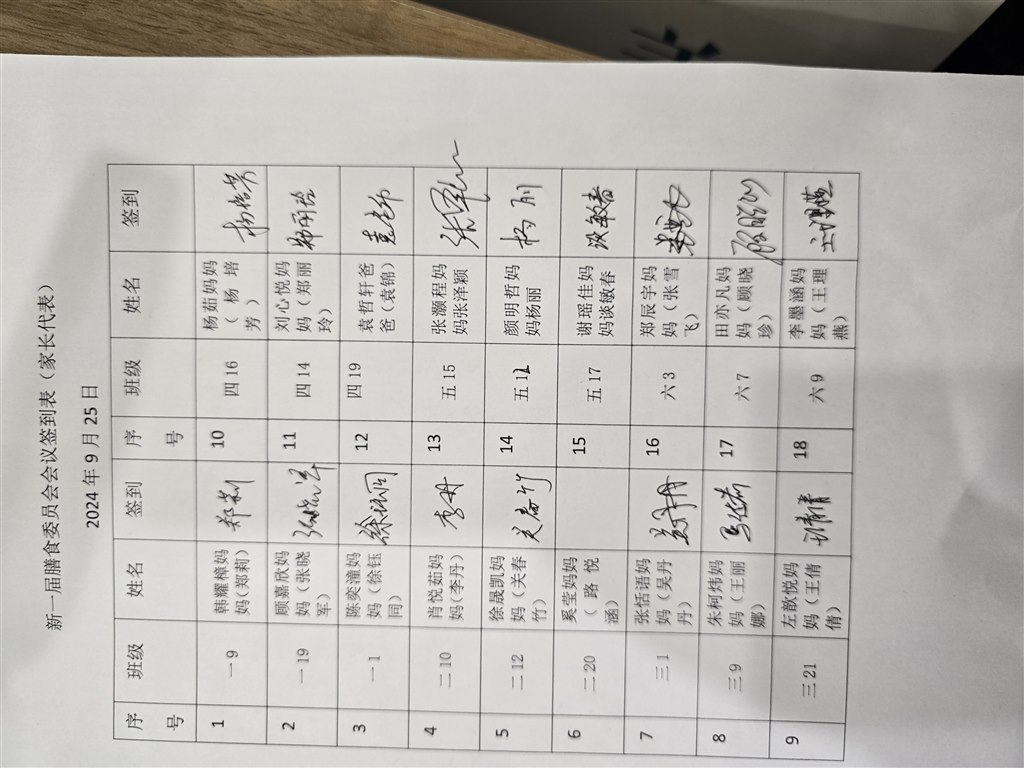 新一届膳食委员会会议签到表（家长代表）
2024年9月25日
序号 班级 姓名 签到 序号 班级 姓名 签到
1 一9 韩耀樟妈妈(郑莉) 郑莉 10 四16 杨茹妈妈（杨培芳） 杨培芳
2 一19 顾嘉欣妈妈（张晓军） 张晓军 11 四14 刘心悦妈妈（郑丽玲） 郑丽玲
3 一1 陈奕潼妈妈（徐钰同） 徐钰同 12 四19 袁哲轩爸爸（袁锦）
4 二10 肖悦茹妈妈(李丹） 李丹 13 五15 张灏程妈妈张泽颖
5 二12 徐晟凯妈妈（关春竹） 关春竹 14 五12 颜明哲妈妈杨丽 杨丽
6 二20 奚莹妈妈（路悦涵） 15 五17 谢瑶佳妈妈谈敏春 谈敏春
7 三1 张恬语妈妈（吴丹丹） 吴丹丹 16 六3 郑辰宇妈妈（张雪飞）
8 三9 朱柯炜妈妈（王丽娜） 17 六7 田亦凡妈妈（顾晓珍） 顾晓珍
9 三21 左歆悦妈妈（王倩倩） 王倩倩 18 六9 李墨涵妈妈（王理燕） 王理燕